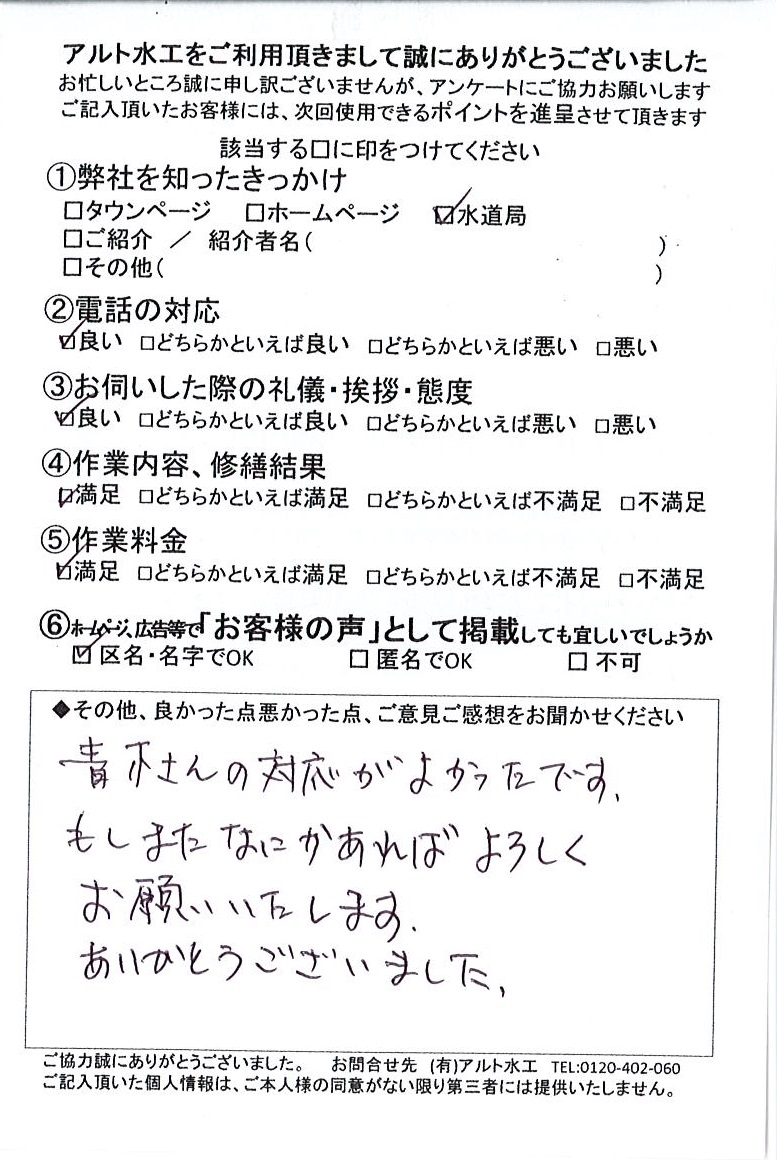 アルト水工をご利用頂きまして誠にありがとうございました
お忙しいところ誠に申し訳ございませんが、アンケートにご協力お願いします
ご記入頂いたお客様には、次回使用できるポイントを進呈させて頂きます
該当する□に印をつけてください
①弊社を知ったきっかけ
□タウンページ □ホームページ ☑水道局
□ご紹介 / 紹介者名( )
□その他( )
②電話の対応
☑良い □どちらかといえば良い □どちらかといえば悪い □悪い
③お伺いした際の礼儀・挨拶・態度
☑良い □どちらかといえば良い □どちらかといえば悪い □悪い
④作業内容、修繕結果
☑満足 □どちらかといえば満足 □どちらかといえば不満足 □不満足
⑤作業料金
☑満足 □どちらかといえば満足 □どちらかといえば不満足 □不満足
⑥ホームページ、広告等で「お客様の声」として掲載しても宜しいでしょうか
☑区名・名字でOK □匿名でOK □不可
◆その他、良かった点悪かった点、ご意見ご感想をお聞かせください
青木さんの対応がよかったです。
もしまたなにかあればよろしく
お願いいたします。
ありがとうございました。
ご協力誠にありがとうございました。 お問合せ先 (有)アルト水工 TEL:0120-402-060
ご記入頂いた個人情報は、ご本人様の同意がない限り第三者には提供いたしません。